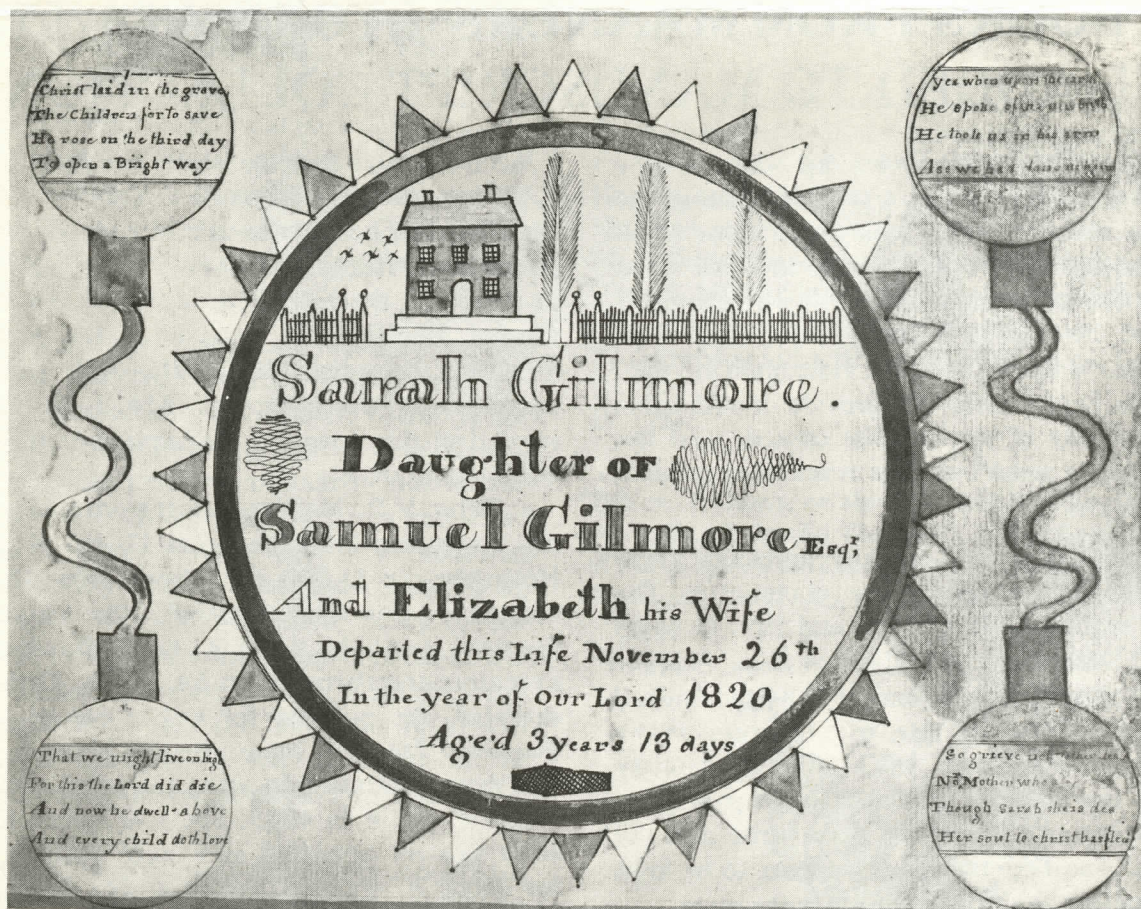 Christ laid in the grave,
The Children for to save
He rose on the third day
To open a Bright way
yea when upon the earth
He spoke of the new birth
He took us in his arm
As we had done no
Sarah Gilmore.
Daughter OF
Samuel Gilmore Esqr,
And Elizabeth his Wife
Departed this Life November 26th
In the year of Our Lord 1820
Aged 3 years 13 days
That we might live on high
For this the Lord did die
And now he dwells above
And every child doth love
So grieve not
No, Mother
Though Sarah she is dea
Her soul to christ has fled